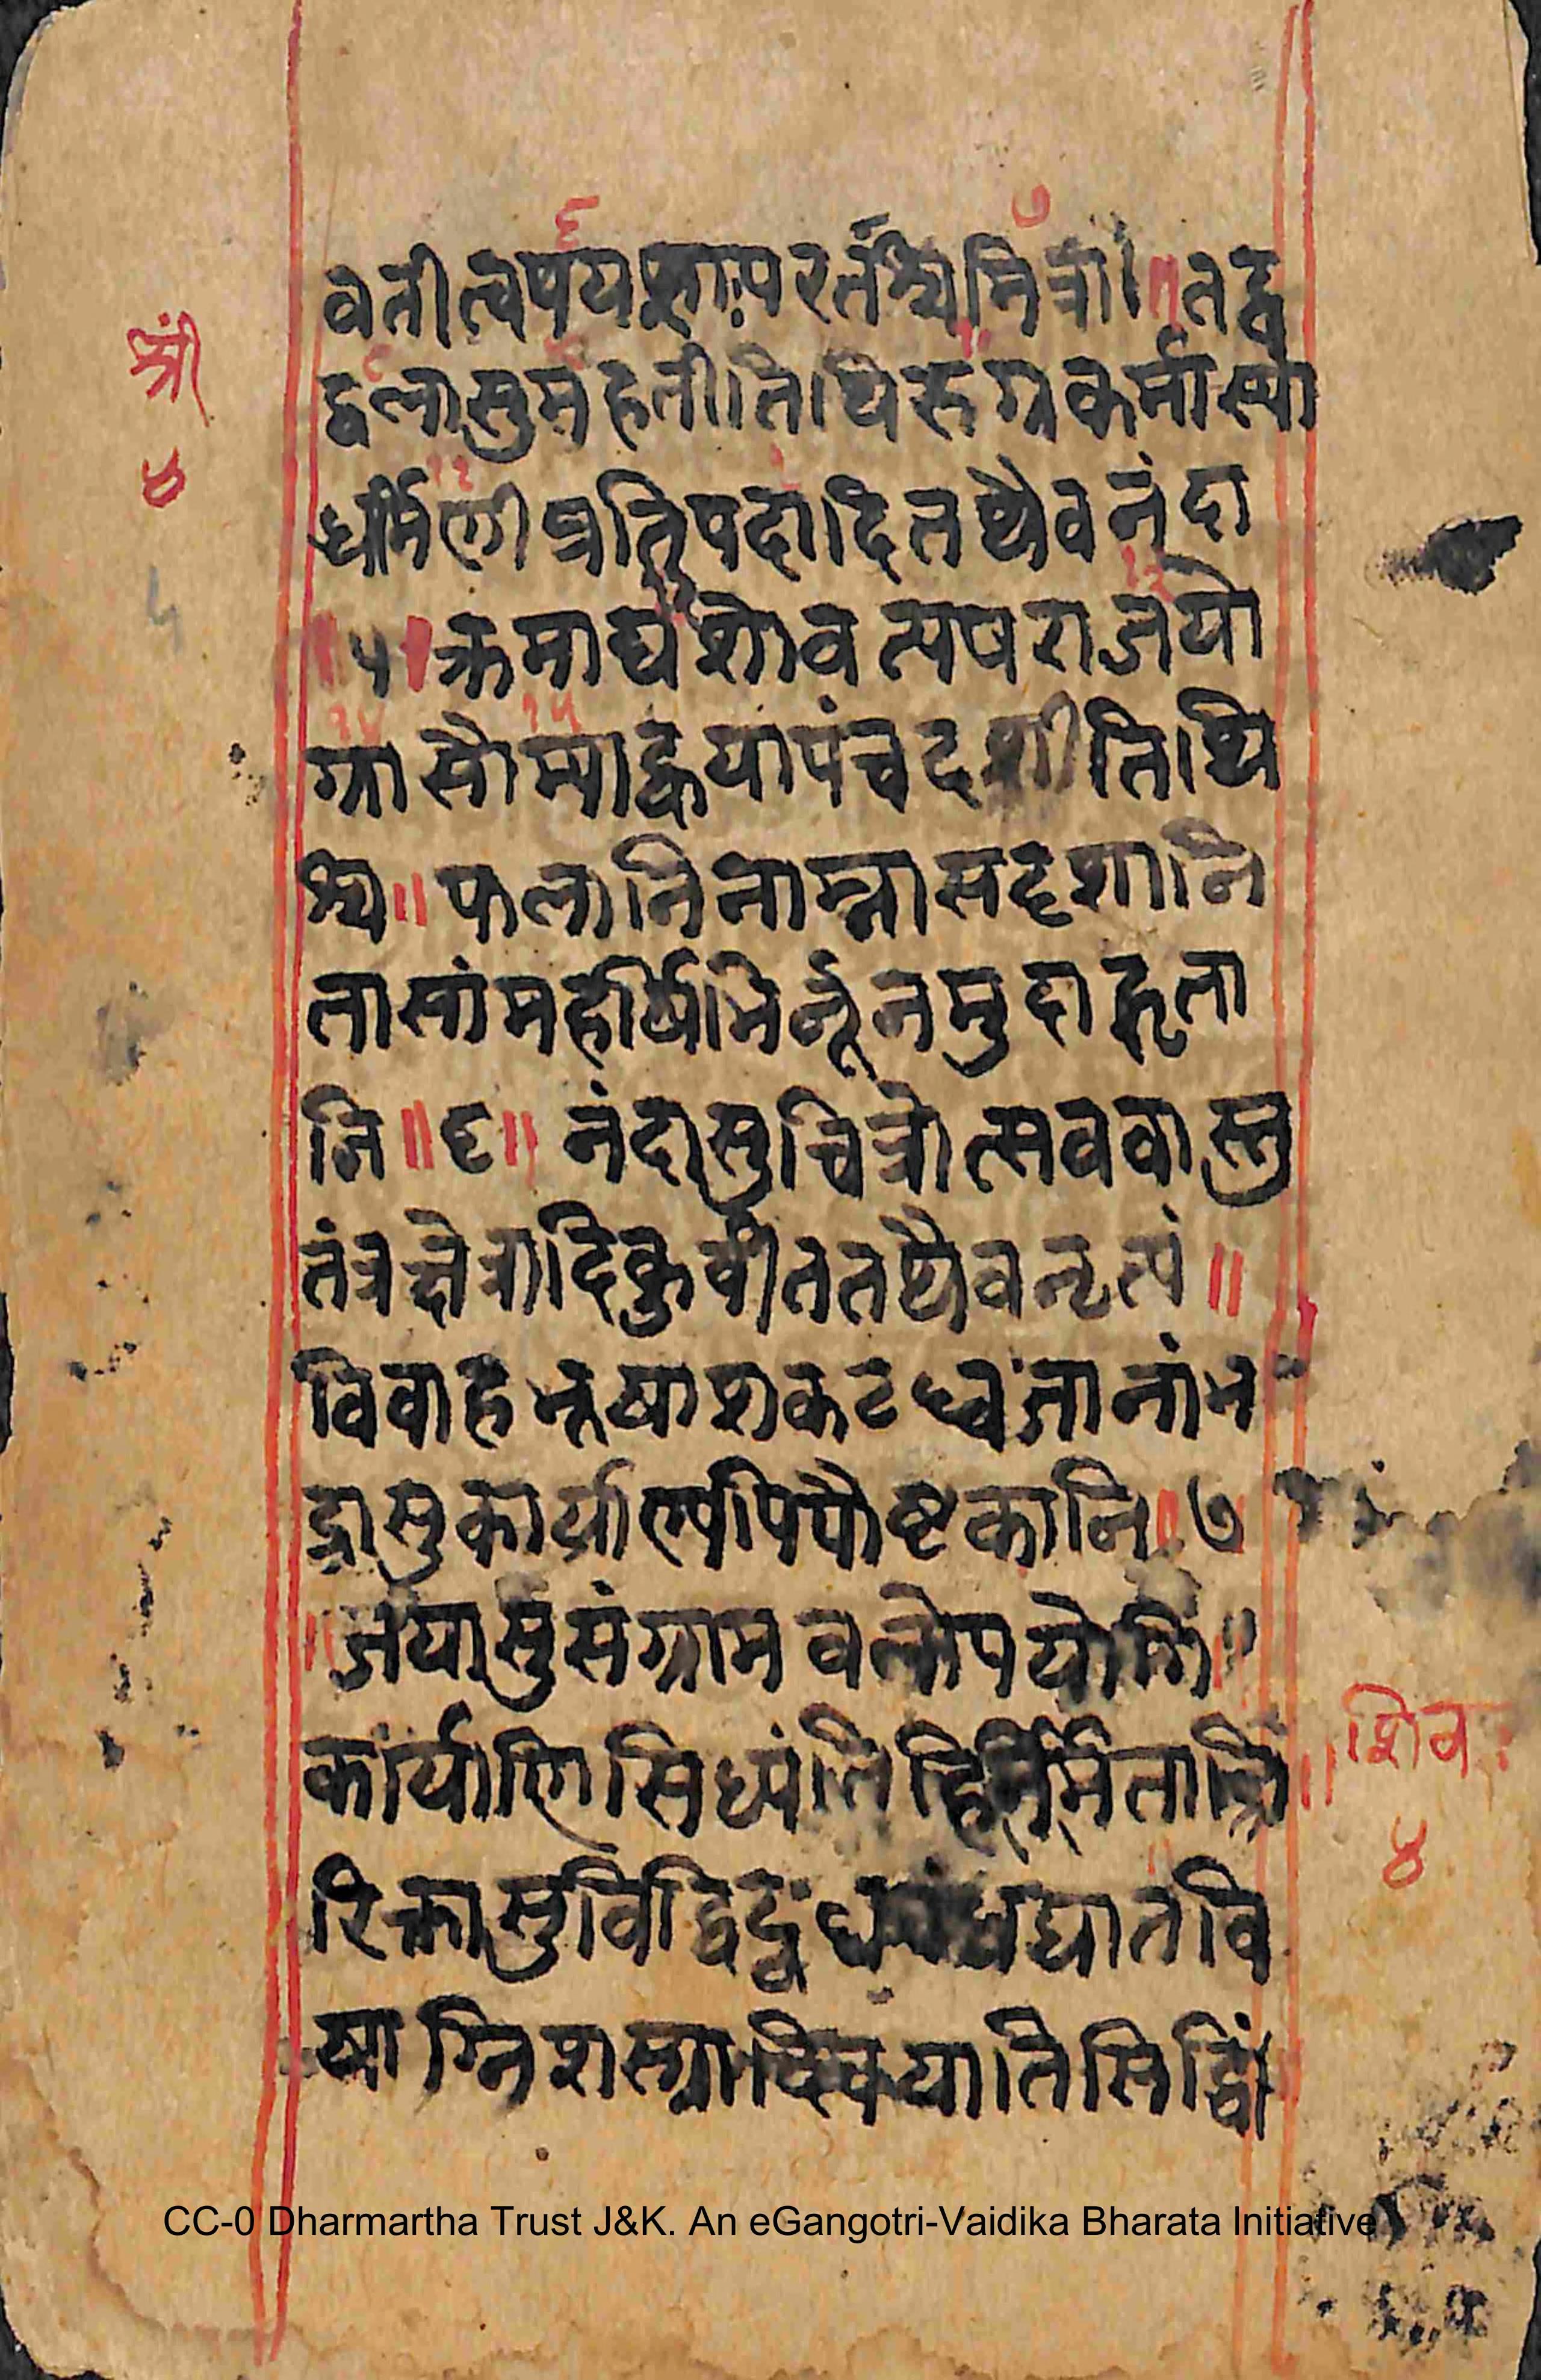 वतीत्वषयशःपरतश्चमित्रा॥तद्व
द्वलासुमहतीतिथिरुग्रकर्मास्या
धर्मिणीप्रतिपदादितथैवनंदा
॥५॥क्रमाद्यशोवत्यपराजयो
ग्रासौम्याह्वयापंचदशीतिथि
श्च॥फलानिनाम्नासदृशानि
तासांमहर्षिभिर्नूनमुदाहृता
नि॥६॥नंदासुचित्रोत्सववास्तु
तंत्रक्षेत्रादिकुर्वीततथैवनृत्यं॥
विवाहभूषाशकटध्वजानांभ
द्रासुकार्याण्यपिपौष्टकानि॥७
॥जयासुसंग्रामबलोपयोगि॥
कार्याणिसिध्यंतिहिनिर्मितानि॥
रिक्तासुविद्विद्वधबंधघातवि
षाग्निशस्त्रादिकयातिसिद्धिं
श्री
४
शिवः
४
CC-0 Dharmartha Trust J&K. An eGangotri-Vaidika Bharata Initiative